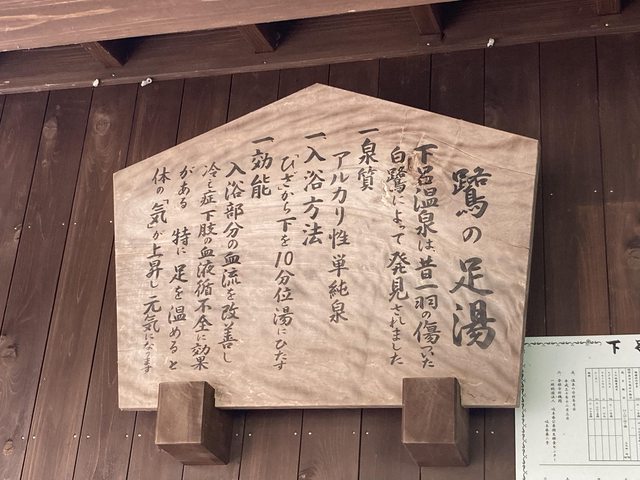 鷺の足湯
下呂温泉は、昔一羽の傷ついた
白鷺によって発見されました
一泉質
アルカリ性単純泉
一入浴方法
「ひざ」から下を10分位湯にひたす
一効能
入浴部分の血流を改善し
冷え症下肢の血液循不全に効果
がある 特に足を温めると
体の「気」が上昇し元気になります
下呂